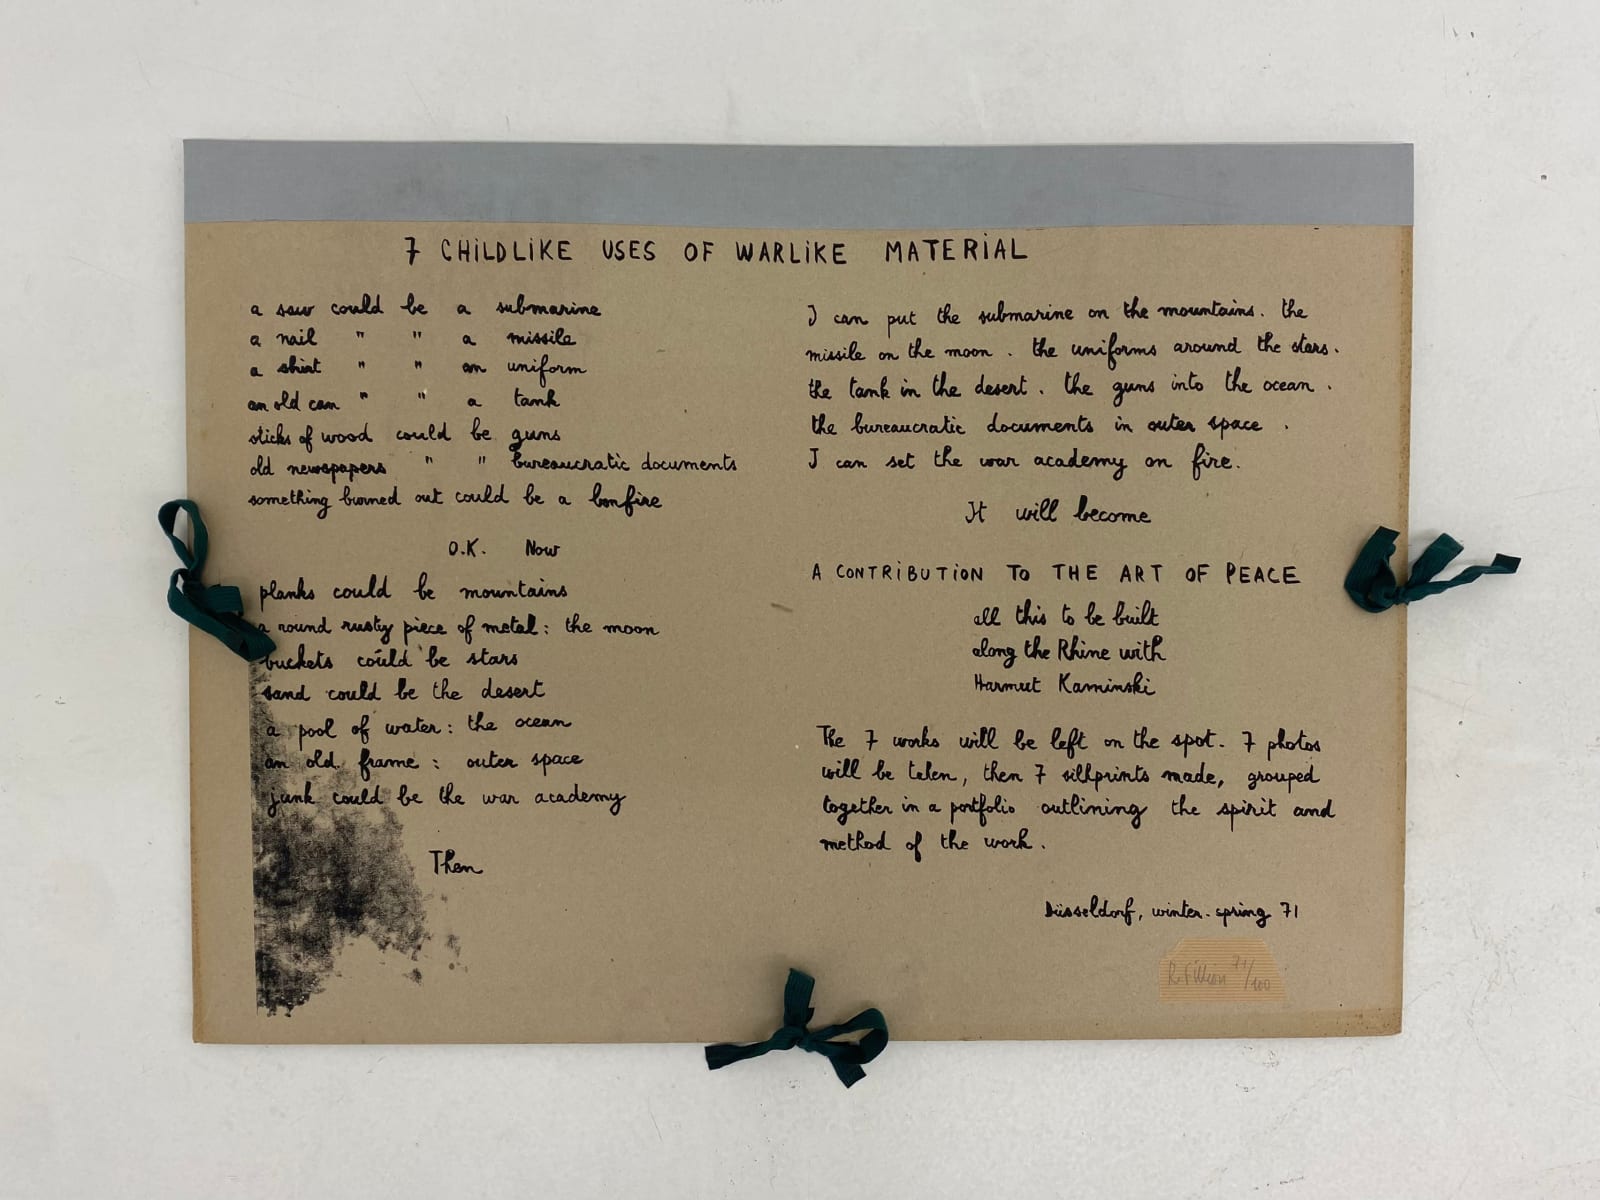 7 CHiLDLiKE USES OF WARLiKE MATERiAL
a saw could be a submarine
a nail " " a missile
a shirt " " an uniform
an old can " " a tank
sticks of wood could be guns
old newspapers " " bureaucratic documents
something burned out could be a bonfire
O.K. Now
planks could be mountains
a round rusty piece of metal: the moon
buckets could be stars
sand could be the desert
a pool of water: the ocean
an old frame: outer space
junk could be the war academy
Then
I can put the submarine on the mountains. the
missile on the moon. the uniforms around the stars.
the tank in the desert. the guns into the ocean.
the bureaucratic documents in outer space.
I can set the war academy on fire.
It will become
A CONTRiBUTiON TO THE ART OF PEACE
all this to be built
along the Rhine with
Harmut Kaminski
The 7 works will be left on the spot. 7 photos
will be taken, then 7 silkprints made, grouped
together in a portfolio outlining the spirit and
method of the work.
Düsseldorf, winter-spring 71
R. Filliou 71/100